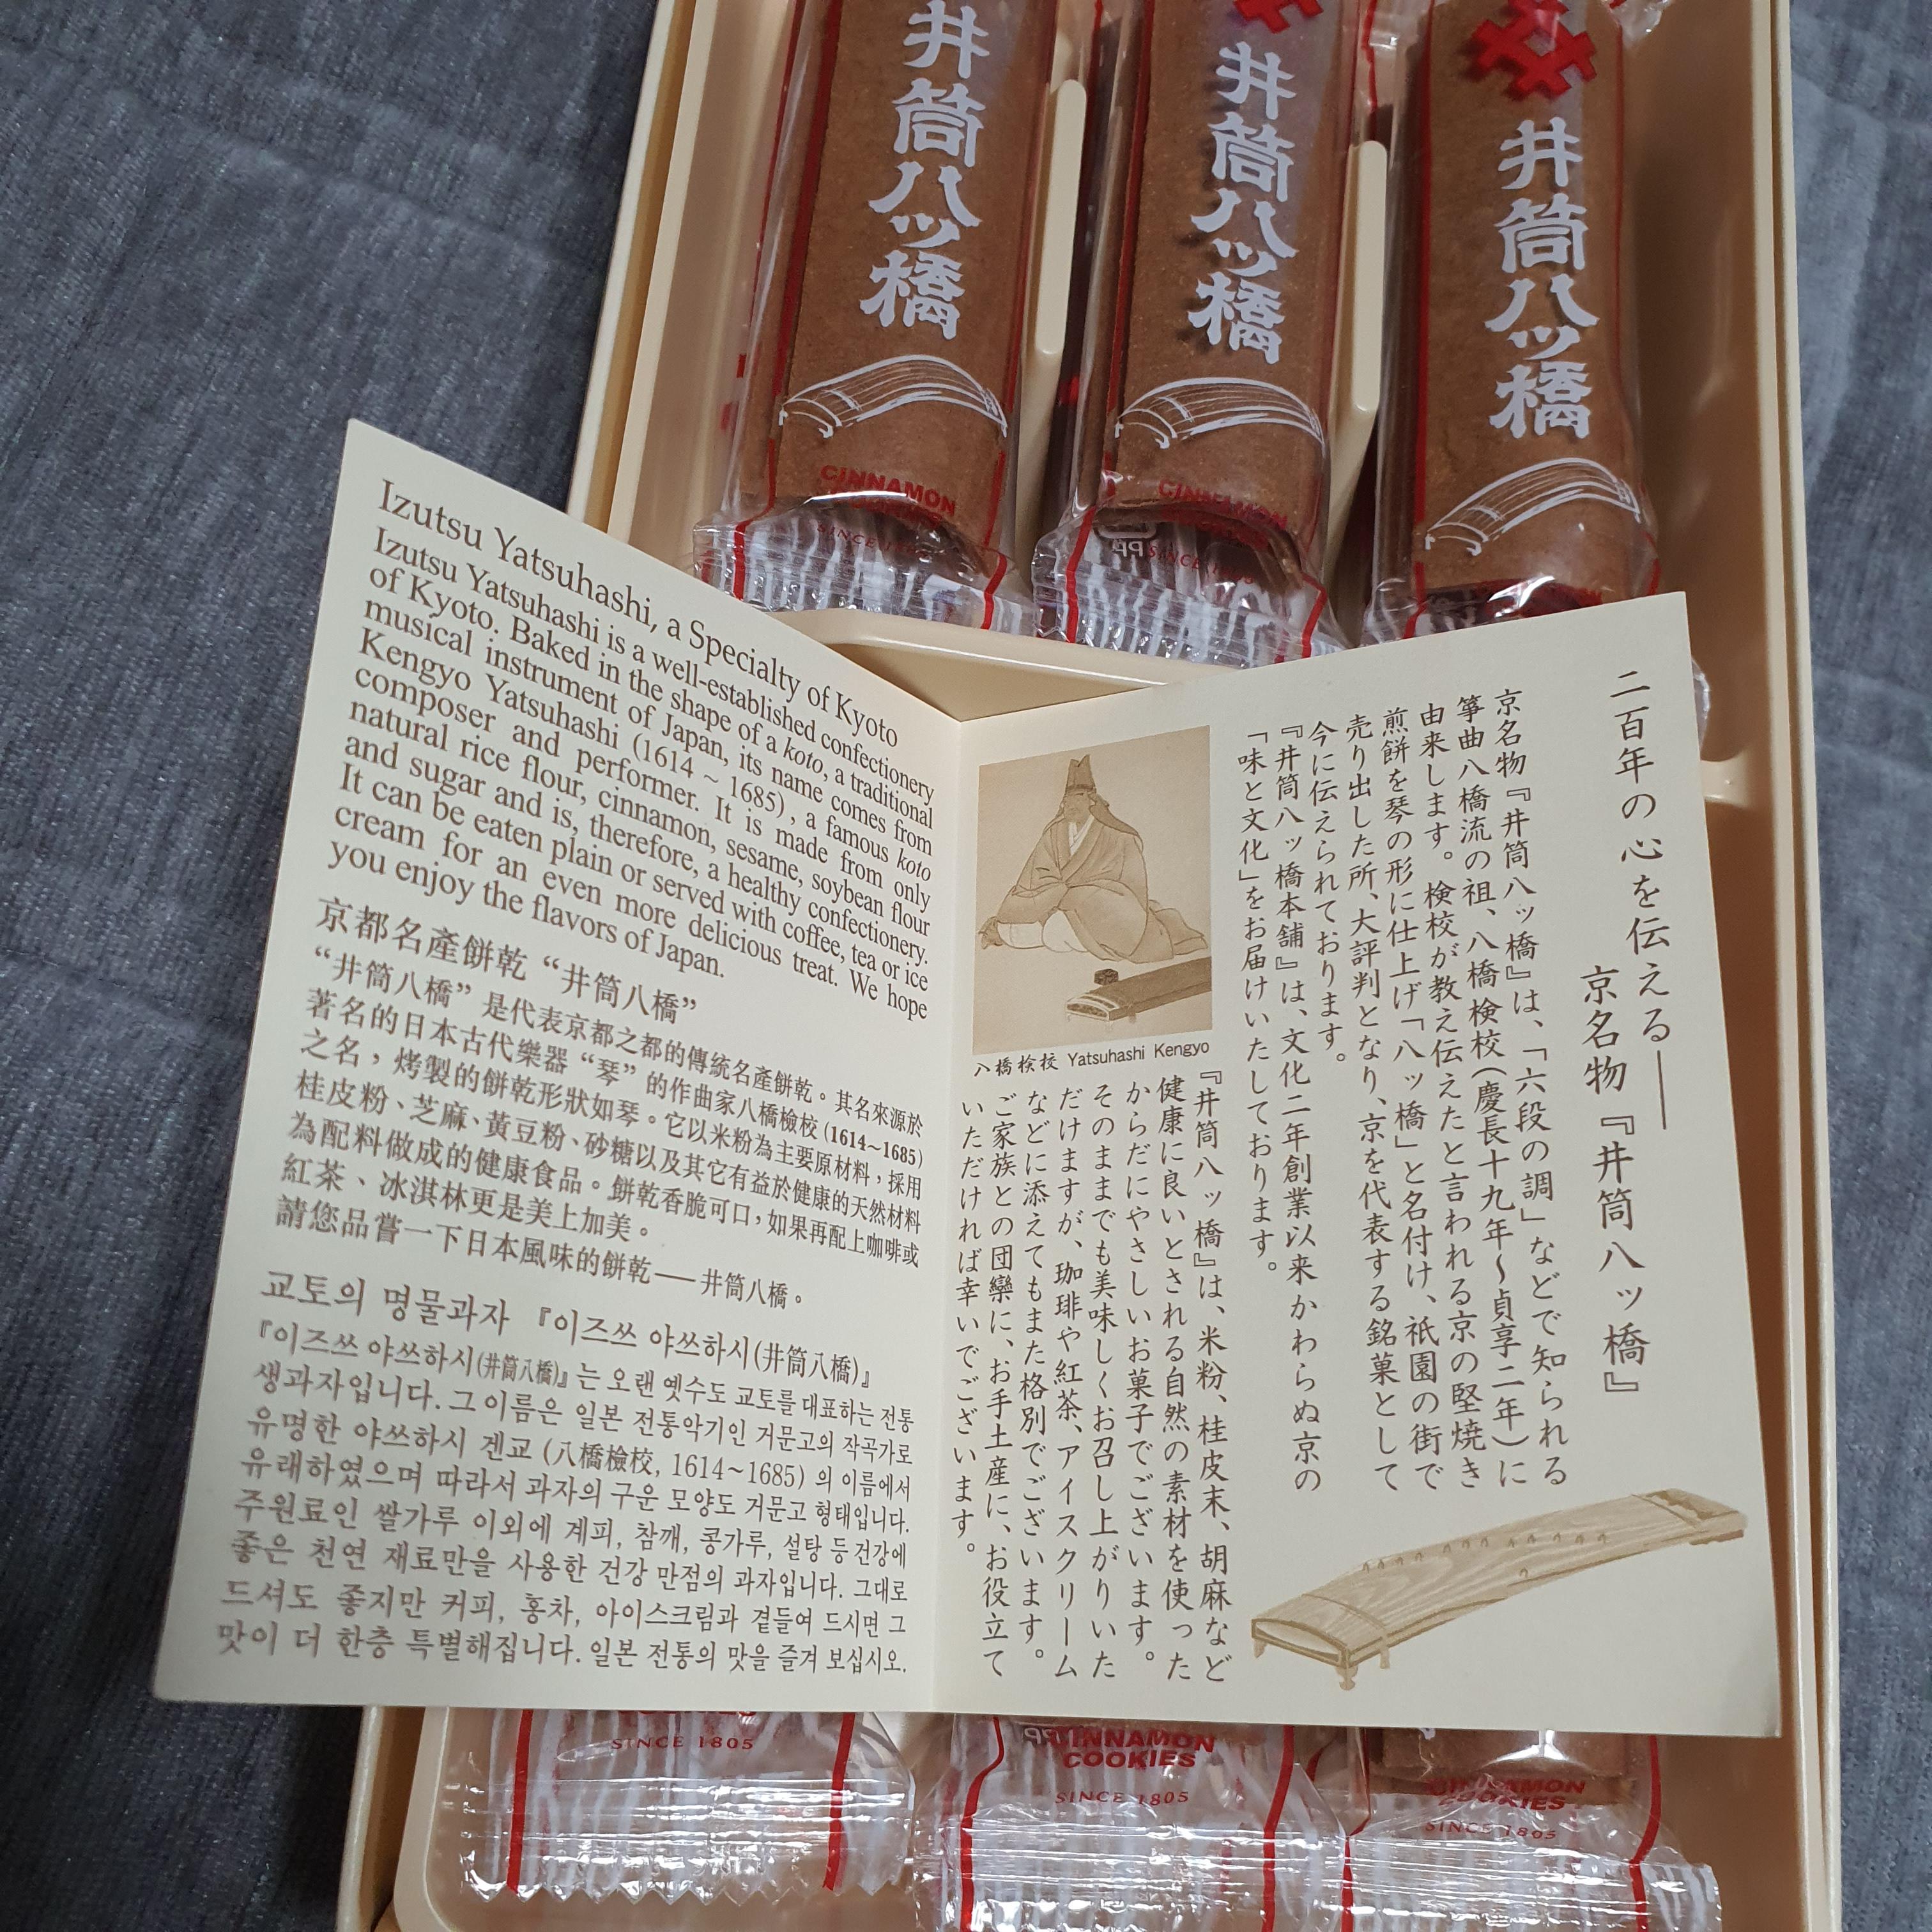 井筒八ッ橋
CINNAMON
SINCE 1805
井筒八ッ橋
CINNAMON
PP
SINCE 1805
井筒八ッ橋
Izutsu Yatsuhashi, a Specialty of Kyoto
Izutsu Yatsuhashi is a well-established confectionery
of Kyoto. Baked in the shape of a koto, a traditional
musical instrument of Japan, its name comes from
Kengyo Yatsuhashi (1614 ~ 1685), a famous koto
composer and performer. It is made from only
natural rice flour, cinnamon, sesame, soybean flour
and sugar and is, therefore, a healthy confectionery.
It can be eaten plain or served with coffee, tea or ice
cream for an even more delicious treat. We hope
you enjoy the flavors of Japan.
京都名產餅乾 “井筒八橋”
“井筒八橋” 是代表京都之都的傳統名產餅乾。其名來源於
著名的日本古代樂器 “琴” 的作曲家八橋檢校 (1614~1685)
之名，烤製的餅乾形狀如琴。它以米粉為主要原材料，採用
桂皮粉、芝麻、黃豆粉、砂糖以及其它有益於健康的天然材料
為配料做成的健康食品。餅乾香脆可口，如果再配上咖啡或
紅茶、冰淇林更是美上加美。
請您品嘗一下日本風味的餅乾——井筒八橋。
교토의 명물과자 『이즈쓰 야쓰하시(井筒八橋)』
『이즈쓰 야쓰하시(井筒八橋)』는 오랜 옛수도 교토를 대표하는 전통
생과자입니다. 그 이름은 일본 전통악기인 거문고의 작곡가로
유명한 야쓰하시 겐교 (八橋檢校, 1614~1685) 의 이름에서
유래하였으며 따라서 과자의 구운 모양도 거문고 형태입니다.
주원료인 쌀가루 이외에 계피, 참깨, 콩가루, 설탕 등 건강에
좋은 천연 재료만을 사용한 건강 만점의 과자입니다. 그대로
드셔도 좋지만 커피, 홍차, 아이스크림과 곁들여 드시면 그
맛이 더 한층 특별해집니다. 일본 전통의 맛을 즐겨 보십시오.
二百年の心を伝える——
京名物『井筒八ッ橋』
京名物『井筒八ッ橋』は、「六段の調」などで知られる
箏曲八橋流の祖、八橋検校（慶長十九年〜貞享二年）に
由来します。検校が教え伝えたと言われる京の堅焼き
煎餅を琴の形に仕上げ「八ッ橋」と名付け、祇園の街で
売り出した所、大評判となり、京を代表する銘菓として
今に伝えられております。
『井筒八ッ橋本舗』は、文化二年創業以来かわらぬ京の
「味と文化」をお届けいたしております。
八橋検校 Yatsuhashi Kengyo
『井筒八ッ橋』は、米粉、桂皮末、胡麻など
健康に良いとされる自然の素材を使った
からだにやさしいお菓子でございます。
そのままでも美味しくお召し上がりいた
だけますが、珈琲や紅茶、アイスクリーム
などに添えてもまた格別でございます。
ご家族との団欒に、お手土産に、お役立て
いただければ幸いでございます。
SINCE 1805
CINNAMON
COOKIES
SINCE 1805
CINNAMON
COOKIES
SINCE 1805